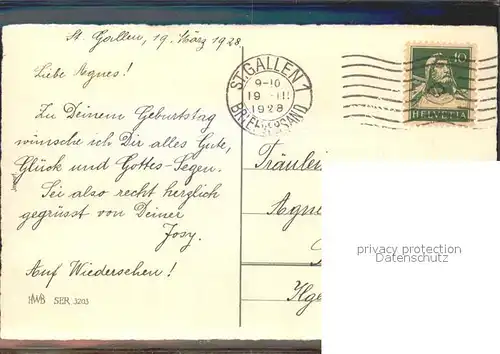 St. Gallen, 19. März 1928
Liebe Agnes!
Zu Deinem Geburtstag
wünsche ich Dir alles Gute,
Glück und Gottes-Segen.
Sei also recht herzlich
gegrüsst von Deiner
Josy.
Auf Wiedersehen!
HWB SER. 3203
ST. GALLEN 1
9-10
19. III
1928
BRIEFVERSAND
10
HELVETIA
Fräulein
Agne
Ilge
privacy protection
Datenschutz